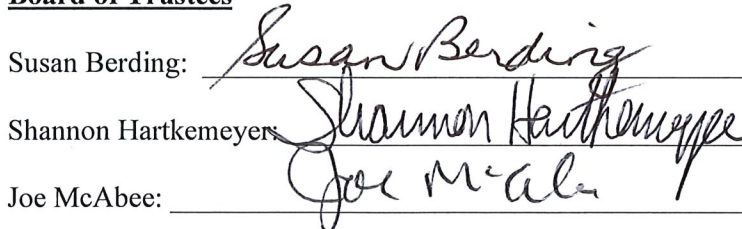 Board of Trustees
Susan Berding: Susan Berding
Shannon Hartkemeyer: Shannon Hartkemeyer
Joe McAbee: Joe McAbee